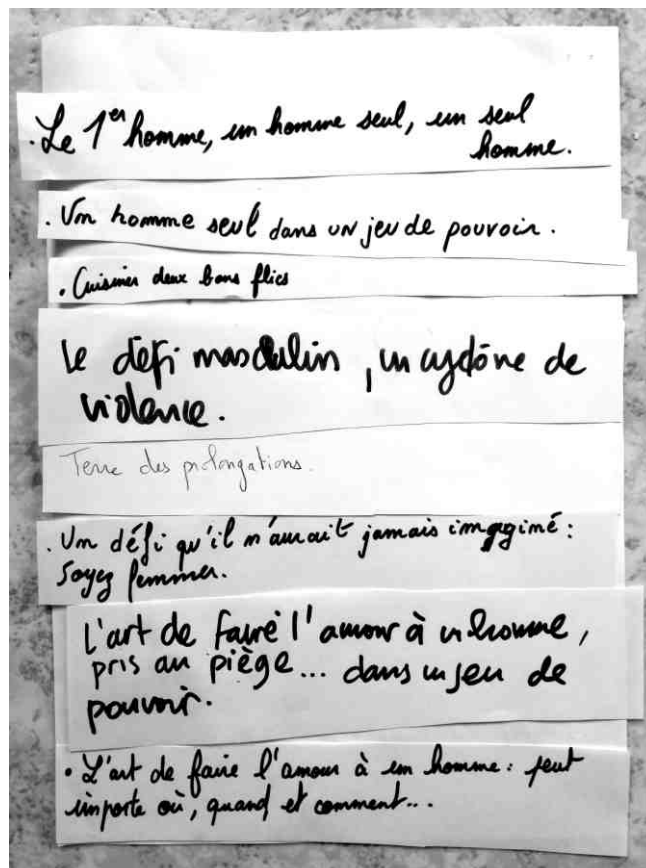 . Le 1er homme, un homme seul, un seul
homme.
. Un homme seul dans un jeu de pouvoir.
. Cuisiner deux bons flics
Le défi masculin, un cyclône de
violence.
Terre des prolongations.
. Un défi qu'il n'aurait jamais imaginé :
Soyez femmes.
L'art de faire l'amour à un homme,
pris au piège... dans un jeu de
pouvoir.
. L'art de faire l'amour à un homme : peut
importe où, quand et comment...